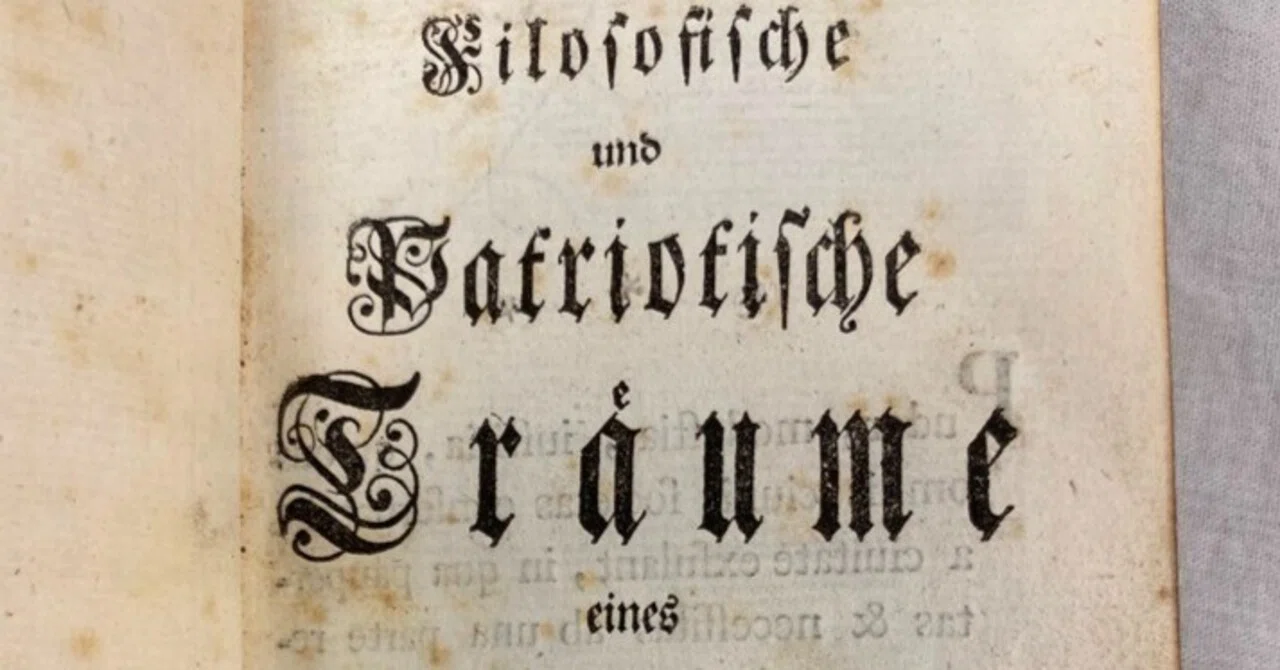 Filosofische
und
Patriotische
Traͤume
eines